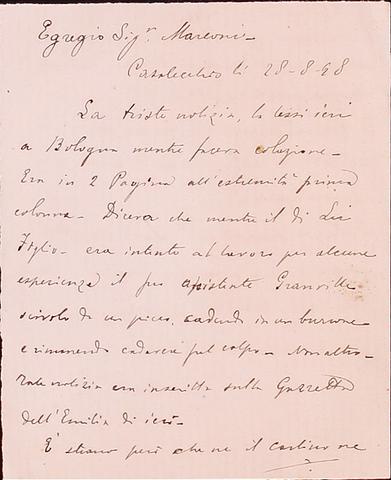 Egregio Sigr. Marconi -
Casalecchio li 28-8-98
La triste notizia, la lessi ieri
a Bologna mentre faceva colazione -
Era in 2 Pagina all'estremità prima
colonna - Diceva che mentre il di Lei
Figlio - era intento al lavoro per alcune
esperienze il suo assistente Granville
scivolò da un picco, cadendo in un burrone
e rimanendo cadavere sul colpo -
tale notizia era inserita sulla Gazzetta
dell'Emilia di ieri -
E' strano però che ne il Carlino ne